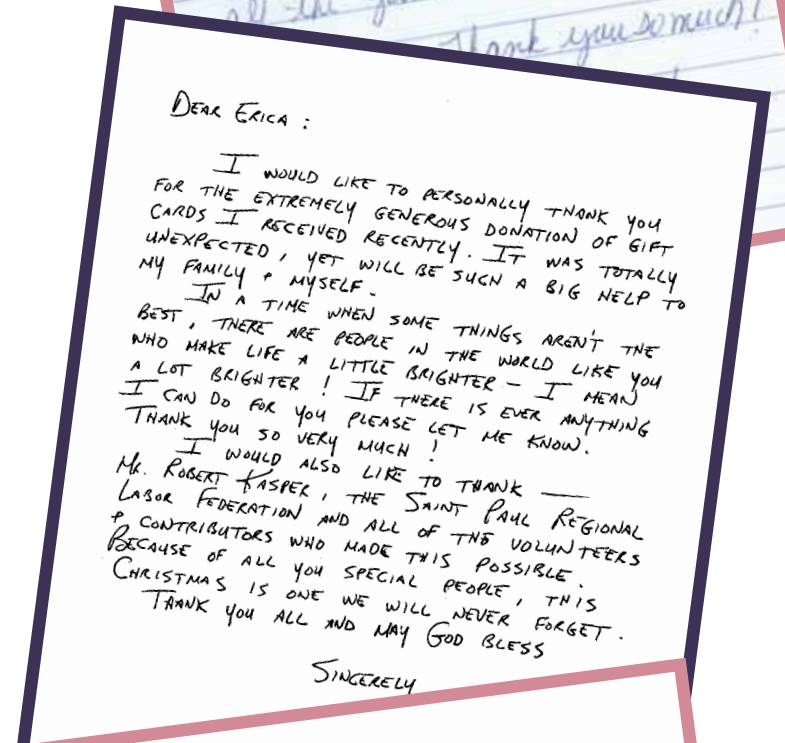 all the
Thank you so much!
DEAR ERICA :
I WOULD LIKE TO PERSONALLY THANK YOU
FOR THE EXTREMELY GENEROUS DONATION OF GIFT
CARDS I RECEIVED RECENTLY. IT WAS TOTALLY
UNEXPECTED, YET WILL BE SUCH A BIG HELP TO
MY FAMILY & MYSELF.
IN A TIME WHEN SOME THINGS AREN'T THE
BEST, THERE ARE PEOPLE IN THE WORLD LIKE YOU
WHO MAKE LIFE A LITTLE BRIGHTER - I MEAN
A LOT BRIGHTER! IF THERE IS EVER ANYTHING
I CAN DO FOR YOU PLEASE LET ME KNOW.
THANK YOU SO VERY MUCH!
I WOULD ALSO LIKE TO THANK —
MR. ROBERT KASPER, THE SAINT PAUL REGIONAL
LABOR FEDERATION AND ALL OF THE VOLUNTEERS
& CONTRIBUTORS WHO MADE THIS POSSIBLE.
BECAUSE OF ALL YOU SPECIAL PEOPLE, THIS
CHRISTMAS IS ONE WE WILL NEVER FORGET.
THANK YOU ALL AND MAY GOD BLESS
SINCERELY